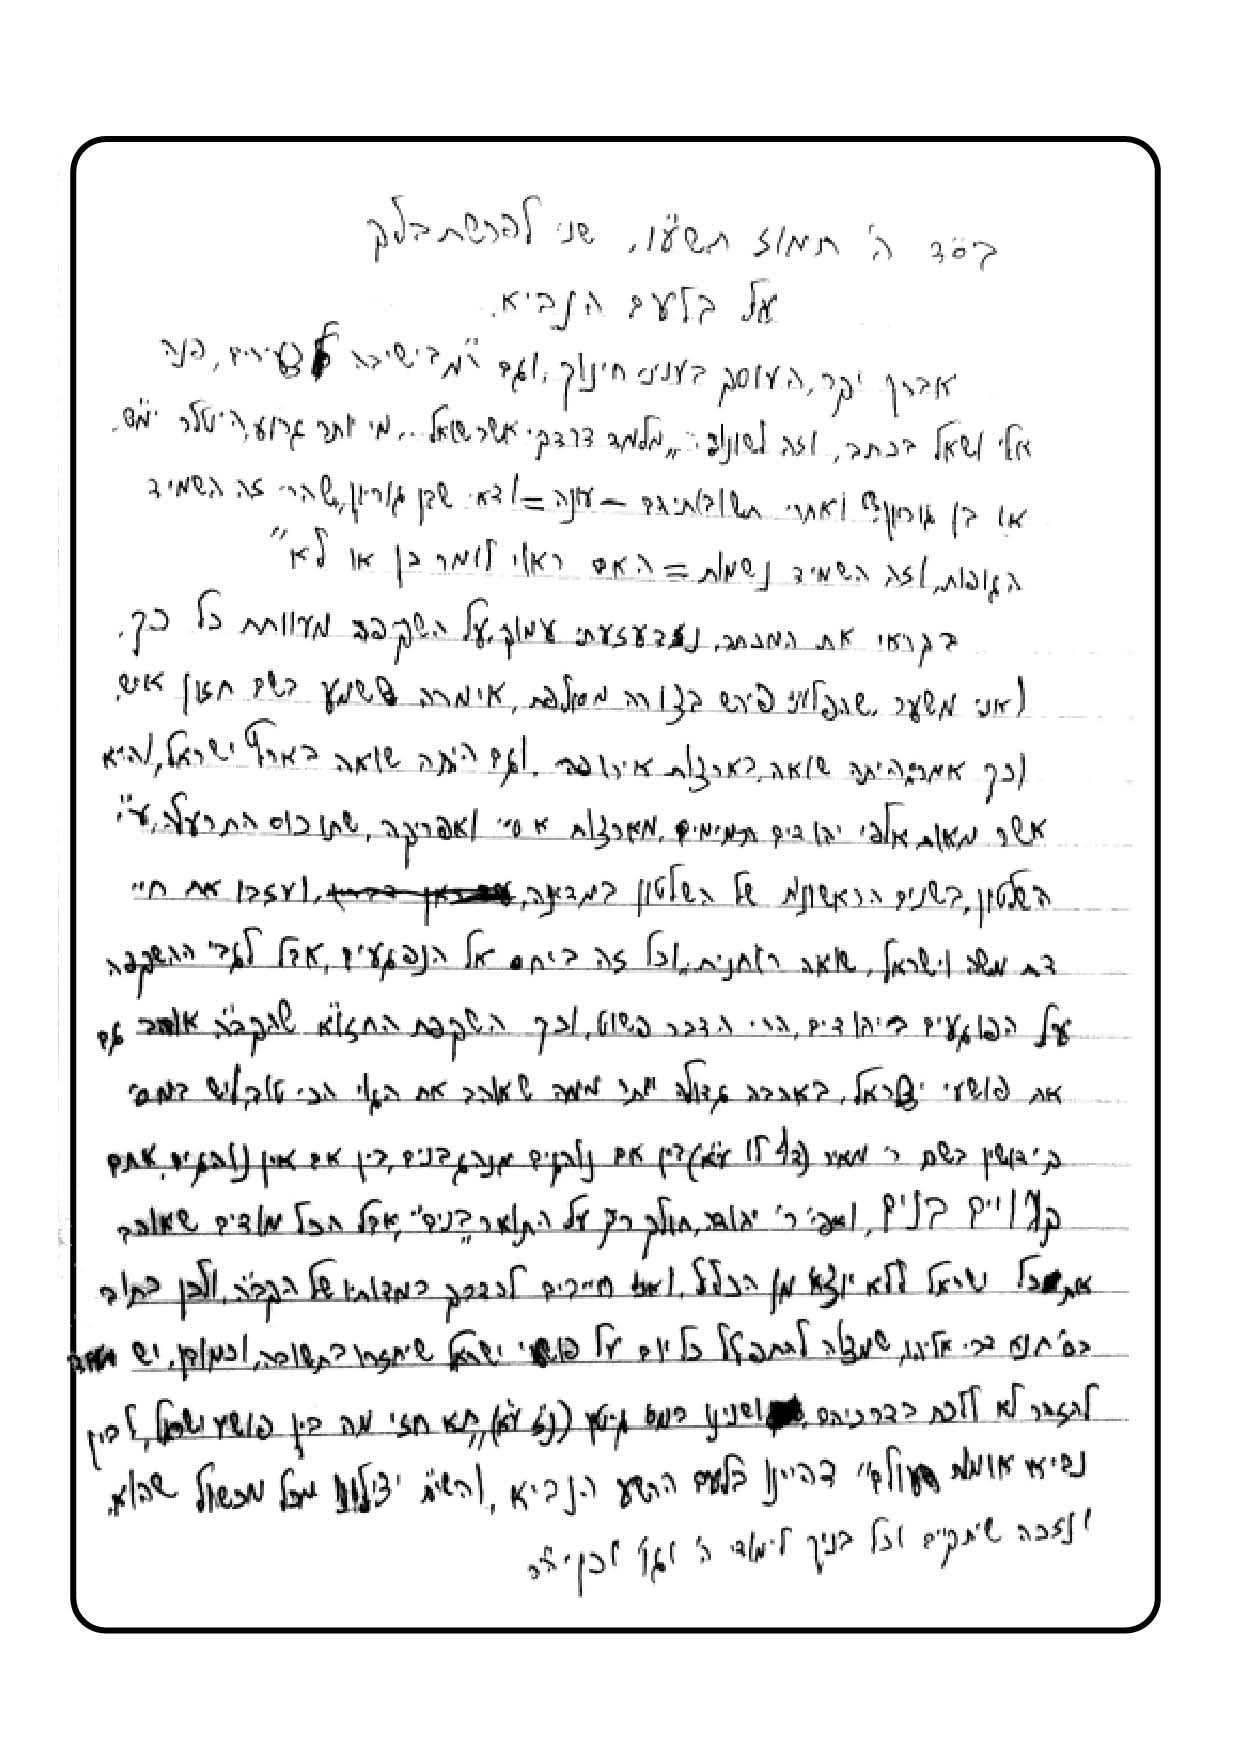 בס"ד ה' תמוז תשע"ו, שני לפרשת בלק
על בלעם הנביא.
אברך יקר, העוסק בעניני חינוך, וגם מ"מ בישיבה לצעירים, פנה
אלי ושאל בכתב, וזה לשונו: "מלמד דרדקי אשר שואל... מי יותר גרוע, היטלר ימ"ש,
או בן גוריון? ואחרי תשובותיהם – עונה = ודאי שבן גוריון, שהרי זה השמיד
הגופות, וזה השמיד נשמות = האם ראוי לומר כן או לא"
בקראי את המכתב, נזדעזעתי עמוק, על השקפה מעוותת כל כך.
(אני משער, שהפלוני פירש בצורה מסולפת, אימרה ששמע בשם חזון איש,
וכך אמר: היתה שואה, בארצות אירופה, וגם היתה שואה בארץ ישראל, והיא
אשר מאות אלפי יהודים תמימים, מארצות אסי' ואפריקה, שתו כוס התרעלה, ע"י
השלטון, בשנים הראשונות של השלטון במדינה, ועזבו את חיי
דת משה וישראל, שואה רוחנית, וכל זה ביחס אל הנפגעים, אבל לגבי ההשקפה
על הפוגעים ביהודים, הרי הדבר פשוט, וכך השקפת החזו"א שהקב"ה אוהב גם
את פושעי ישראל, באהבה גדולה יותר ממה שאוהב את הגוי הכי טוב, ויש במס'
קידושין בשם ר' מאיר (דף לו ע"א) בין אם נוהגים מנהג בנים, בין אם אין נוהגים, אתם
קרויים בנים, ואפי' ר' יהודה, חולק רק על התואר "בנים", אבל הכל מודים שאוהב
את כל ישראל ללא יוצא מן הכלל, ואנו חייבים לדבק במדותיו של הקב"ה, ולכן כתוב
בס' תנא דבי אליהו, שמצוה להתפלל כל יום על פושעי ישראל שיחזרו בתשובה, וכמובן, יש
להזהר לא ללכת בדרכיהם, ושנינו במס' גיטין (נ"ז ע"א) "תא חזי מה בין פושעי ישראל, לבין
נביאי אומות העולם" דהיינו בלעם הרשע הנביא, והשי"ת יצילנו מכל מכשול שהוא,
ונזכה שיתקיים וכל בניך לימודי ה' וגו' וכן יה"ר